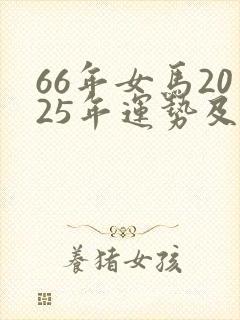 66年女馬20
25年運勢及
養猪女孩